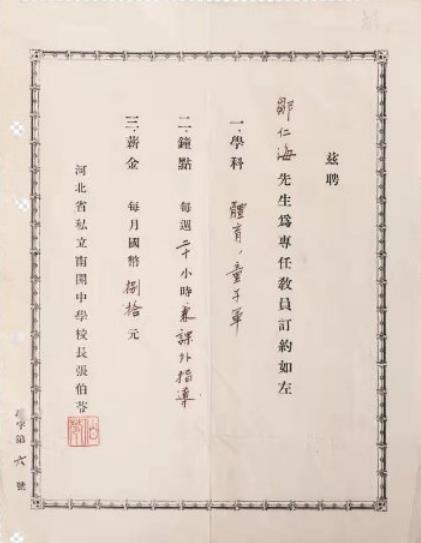 兹聘
鄒仁海先生爲專任教員訂約如左
一．學科　體育，童子軍
二．鐘點　每週二十小時兼課外指導
三．薪金　每月國幣捌拾元
河北省私立南開中學校長張伯苓
字第六號